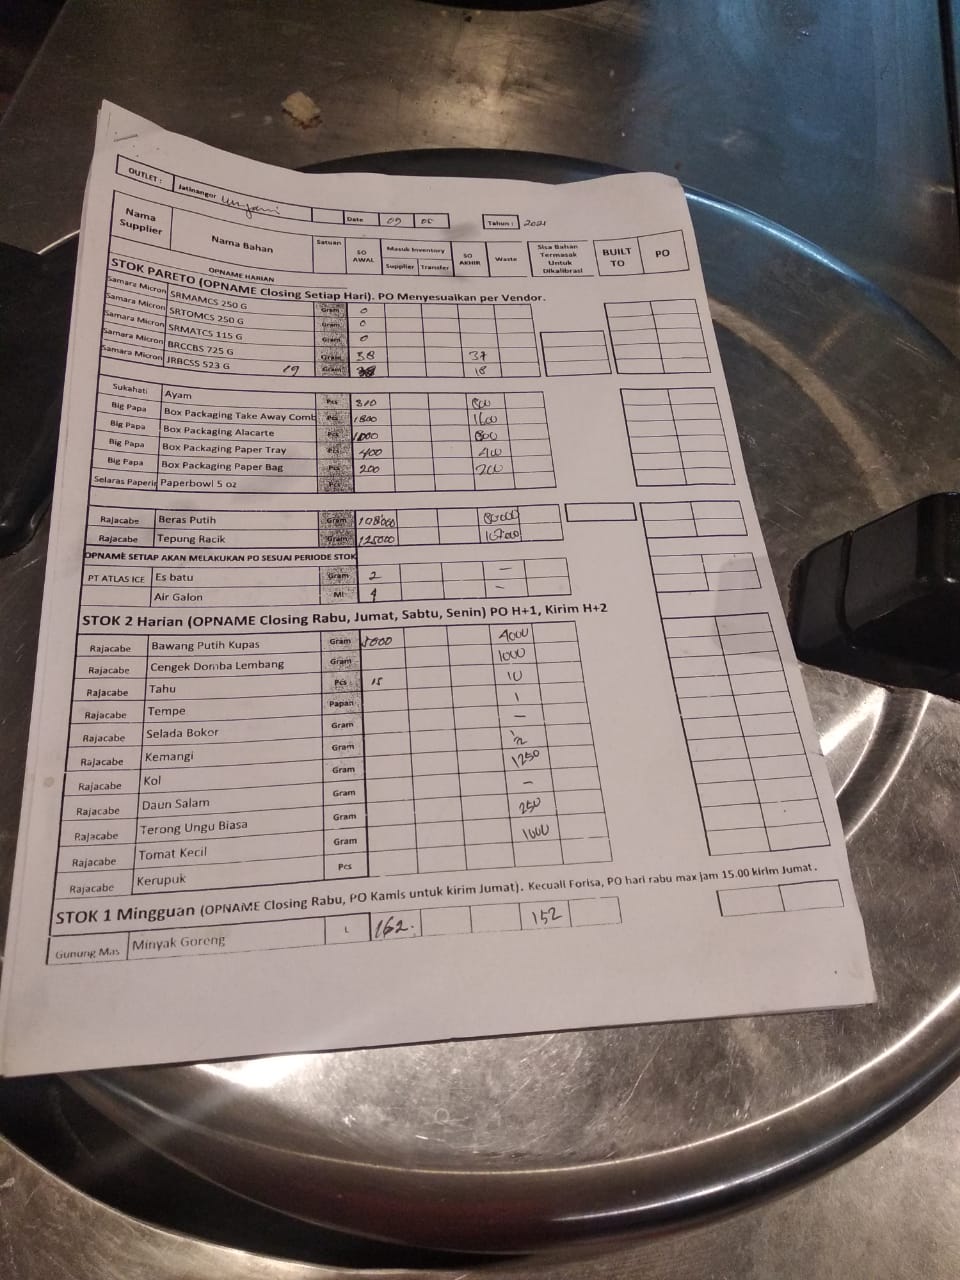 OUTLET : Jatinangor Date 09 05 Tahun : 2021
Nama Supplier Nama Bahan Satuan SO AWAL Masuk Inventory Supplier Transfer SO AKHIR Waste Sisa Bahan Termasak Untuk Dikalibrasi BUILT TO PO
OPNAME HARIAN
STOK PARETO (OPNAME Closing Setiap Hari). PO Menyesuaikan per Vendor.
Samara Micron SRMAMCS 250 G Gram 0
Samara Micron SRTOMCS 250 G Gram 0
Samara Micron SRMATCS 115 G Gram 0
Samara Micron BRCCBS 725 G Gram 38 37
Samara Micron JRBCSS 523 G 19 Gram 18
Sukahati Ayam Pcs 310
Big Papa Box Packaging Take Away Comb Pcs 1800 1600
Big Papa Box Packaging Alacarte Pcs 1000 800
Big Papa Box Packaging Paper Tray Pcs 400 400
Big Papa Box Packaging Paper Bag Pcs 200 200
Selaras Paperin Paperbowl 5 oz Pcs
Rajacabe Beras Putih Gram 108000
Rajacabe Tepung Racik Gram 125000
OPNAME SETIAP AKAN MELAKUKAN PO SESUAI PERIODE STOK
PT ATLAS ICE Es batu Gram 2 –
Air Galon Ml 4 –
STOK 2 Harian (OPNAME Closing Rabu, Jumat, Sabtu, Senin) PO H+1, Kirim H+2
Rajacabe Bawang Putih Kupas Gram 5000 4000
Rajacabe Cengek Domba Lembang Gram 1000
Rajacabe Tahu Pcs 15 10
Rajacabe Tempe Papan 1
Rajacabe Selada Bokor Gram –
Rajacabe Kemangi Gram ½
Rajacabe Kol Gram 1250
Rajacabe Daun Salam Gram –
Rajacabe Terong Ungu Biasa Gram 250
Rajacabe Tomat Kecil Gram 1000
Rajacabe Kerupuk Pcs
STOK 1 Mingguan (OPNAME Closing Rabu, PO Kamis untuk kirim Jumat). Kecuali Forisa, PO hari rabu max jam 15.00 kirim Jumat.
Gunung Mas Minyak Goreng L 162. 152